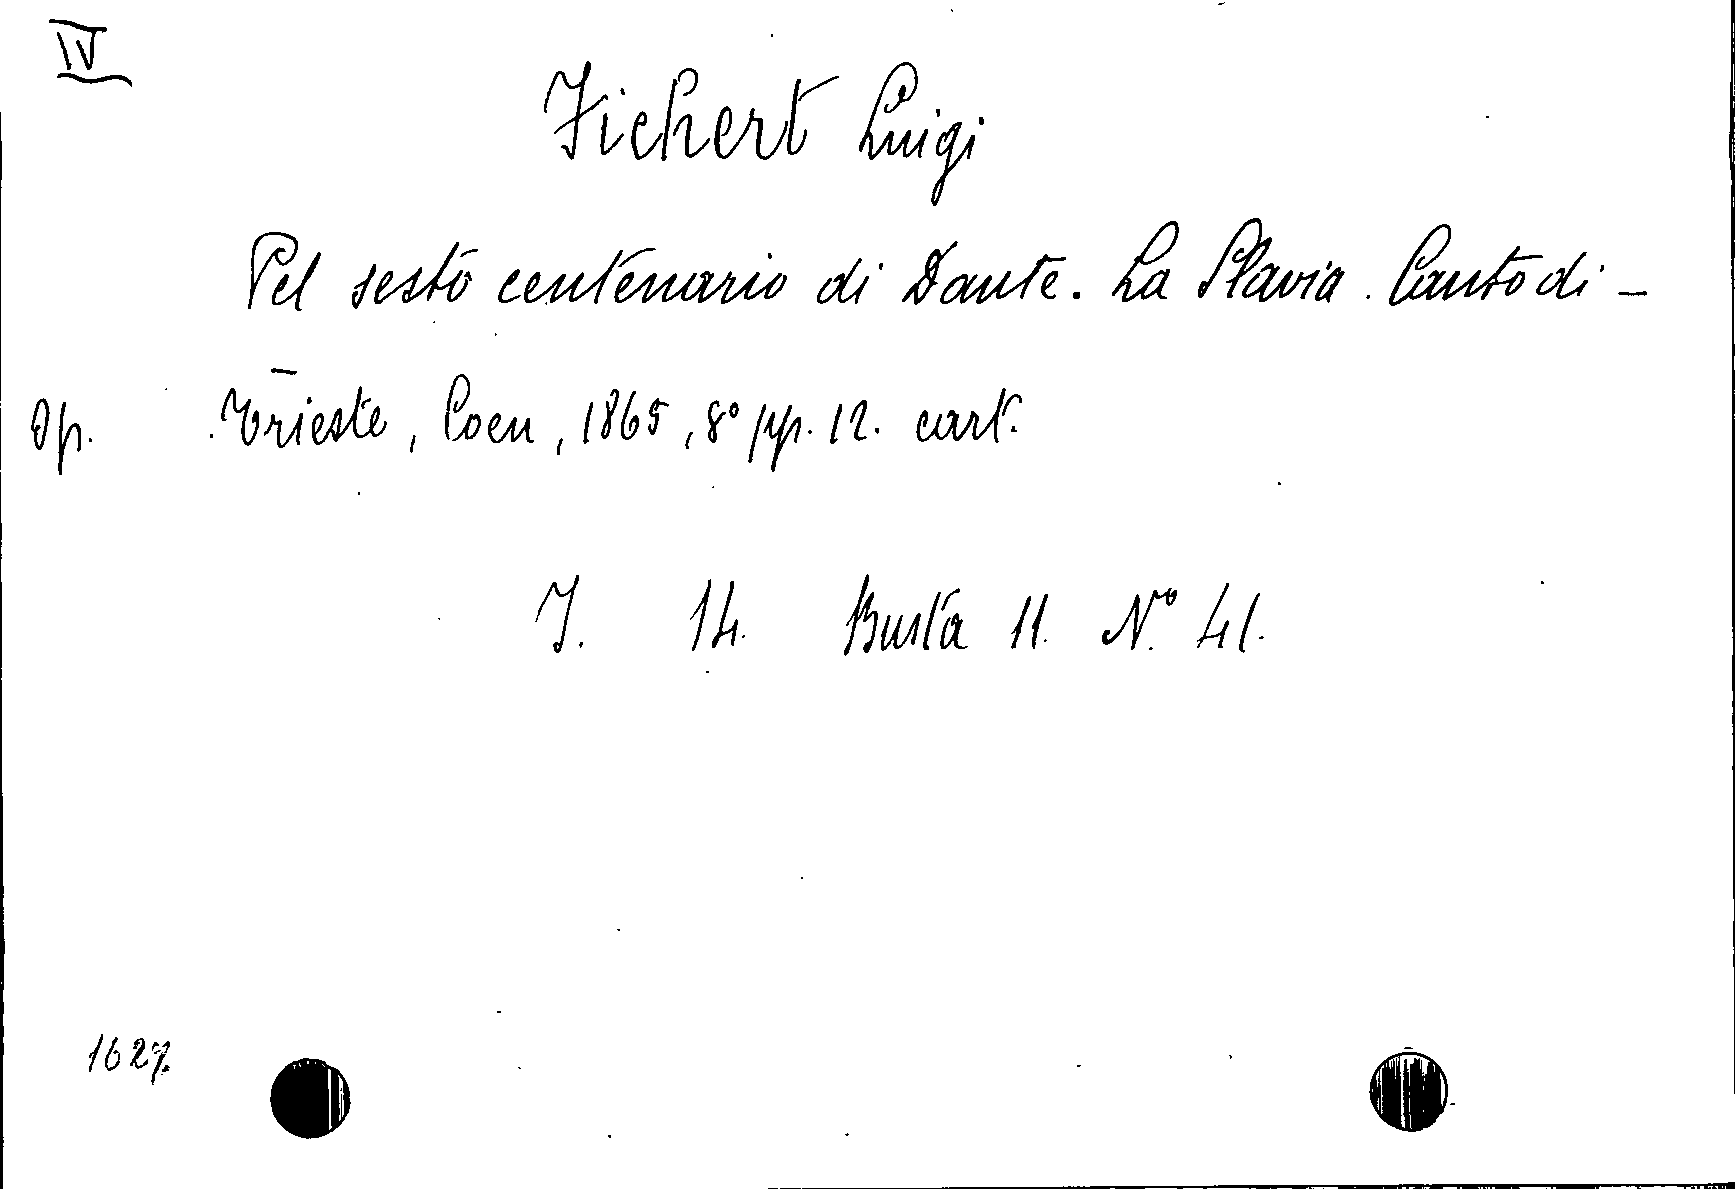 IV
Fichert Luigi
Pel sesto centenario di Dante. La Slavia. Canto di -
Op. Trieste, Coen, 1865, 8° pp. 12. cart.
I. 14. Busta 11. N.° 41.
1627.